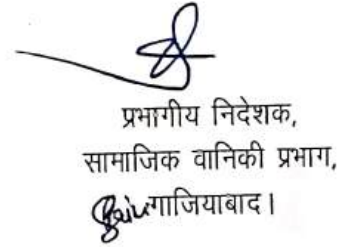 प्रभागीय निदेशक,
सामाजिक वानिकी प्रभाग,
गाजियाबाद।